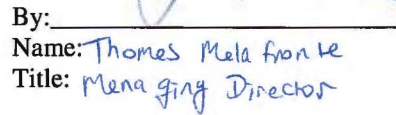 By:
Name: Thomes Mela fronte
Title: Mena ging Director